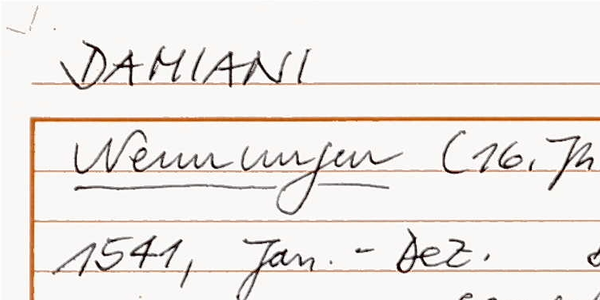 DAMIANI
Nennungen (16. Jh
1541, Jan. - Dez.